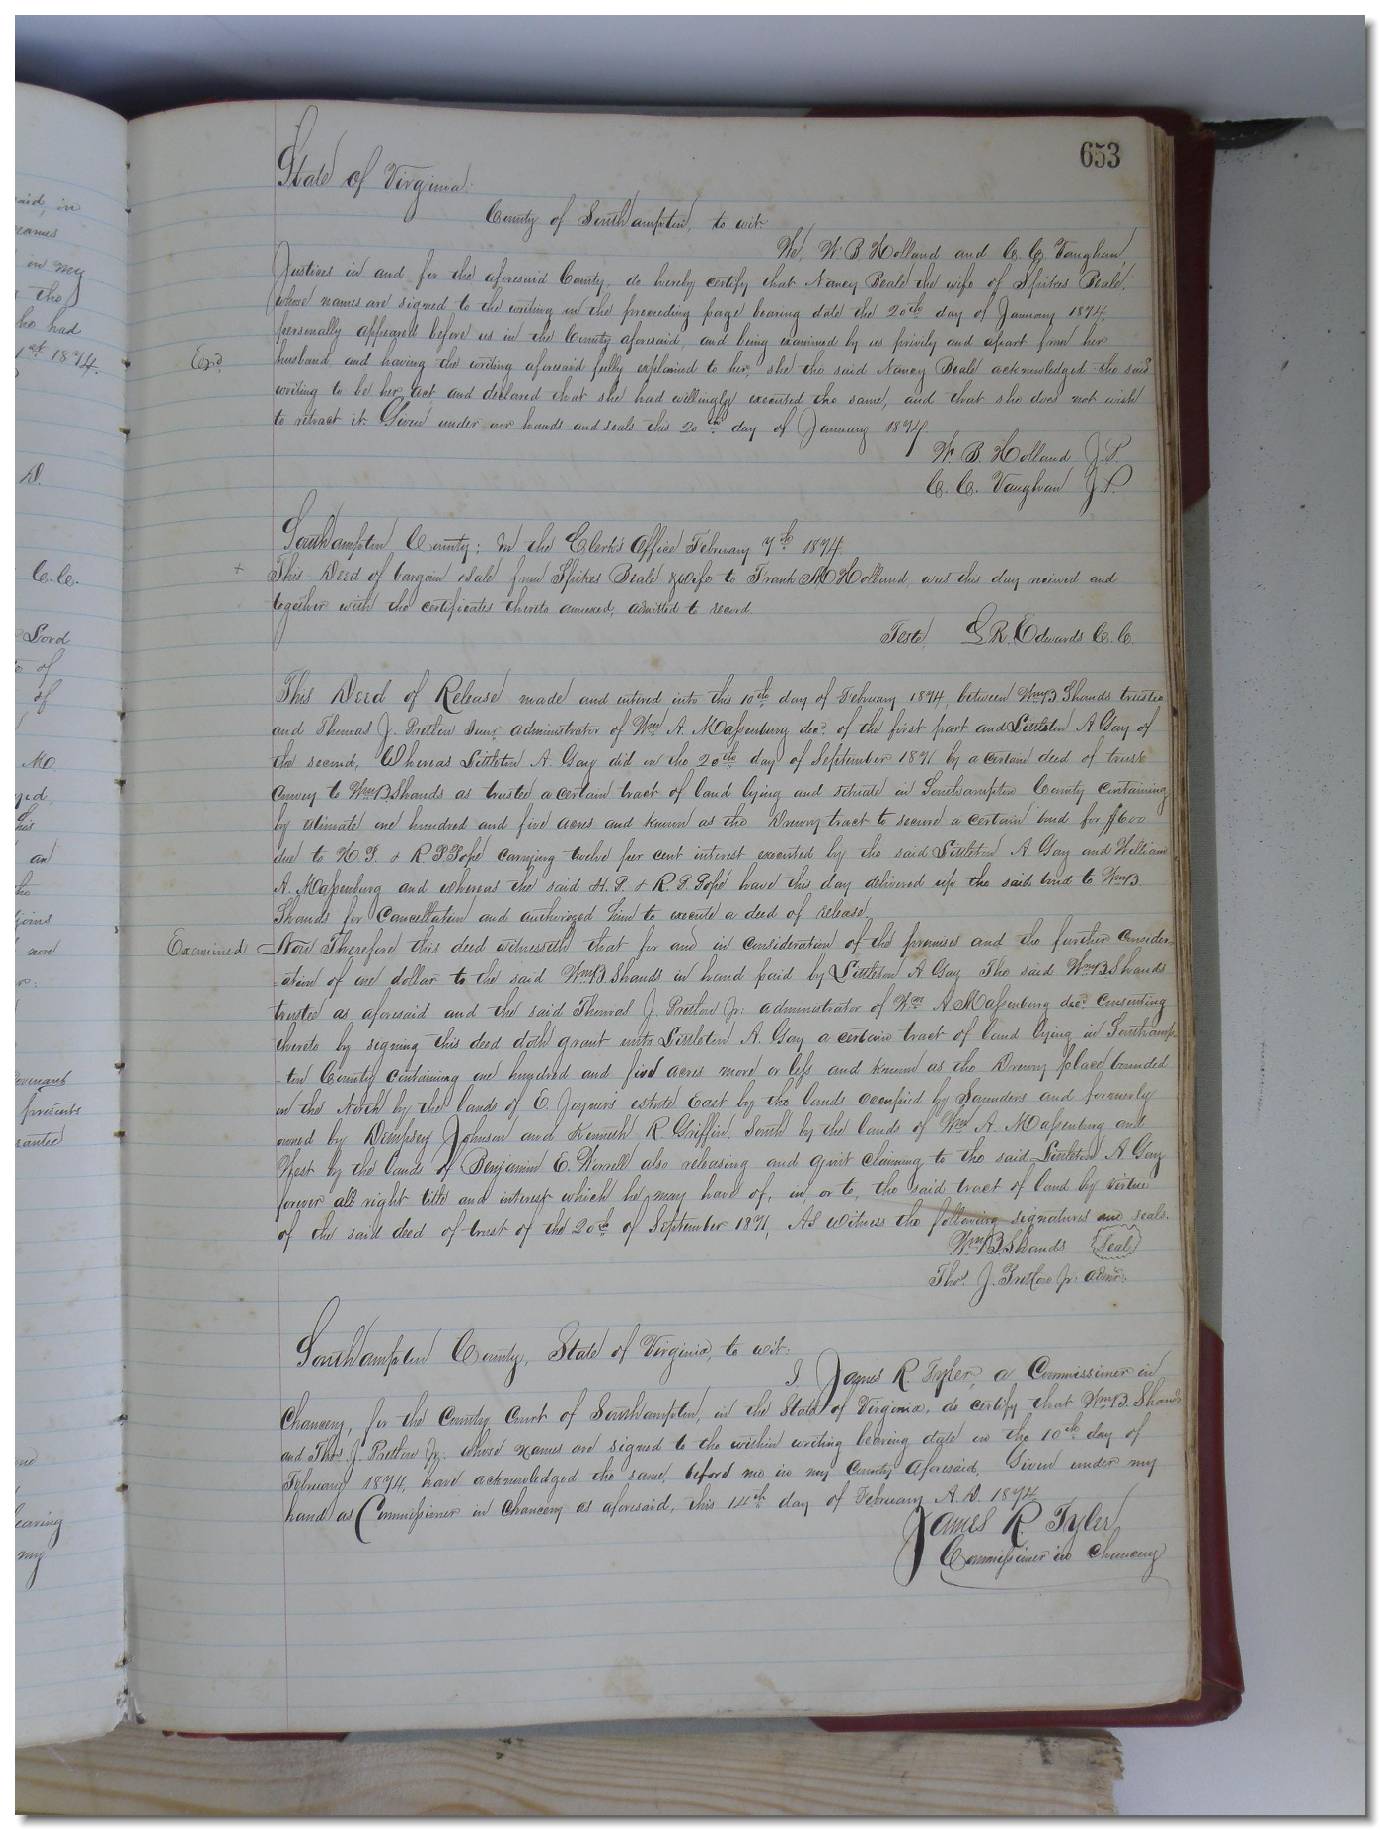 653
State of Virginia:
County of Southampton, to wit:
We, W. B. Holland and C. C. Vaughan,
Justices in and for the aforesaid County, do hereby certify that Nancy Beale the wife of Spikes Beale,
whose names are signed to the writing on the preceeding page bearing date the 20th day of January 1874,
personally appeared before us in the County aforesaid, and being examined by us privily and apart from her
Exd.
husband and having the writing aforesaid fully explained to her, she the said Nancy Beale acknowledged the said
writing to be her act and declared that she had willingly executed the same, and that she does not wish
to retract it. Given under our hands and seals this 20th day of January 1874
W. B. Holland J.P.
C. C. Vaughan J.P.
Southampton County; In the Clerk's Office February 7th 1874.
+ This Deed of bargain & sale from Spikes Beale & wife to Frank M Holland, was this day received and
together with the certificates thereto annexed, admitted to record
Teste, L. R. Edwards C. C.
This Deed of Release made and entered into this 10th day of February 1874, between Wm B. Shands trustee
and Thomas J. Pretlow Junr. administrator of Wm A. Massenburg decd. of the first part and Littleton A Gay of
the second, Whereas Littleton A. Gay did on the 20th day of September 1871 by a certain deed of trust
convey to Wm B. Shands as trustee a certain tract of land lying and situate in Southampton County containing
by estimate one hundred and five acres and known as the Drewry tract to secure a certain bond for $600
due to H. P. & R. P. Pope carrying twelve per cent interest executed by the said Littleton A Gay and William
A. Massenburg and whereas the said H. P. & R. P. Pope have this day delivered up the said bond to Wm B.
Shands for Cancellation and authorized him to execute a deed of release
Examined
Now Therefore this deed witnesseth that for and in consideration of the premises and the further consider-
-ation of one dollar to the said Wm B. Shands in hand paid by Littleton A Gay The said Wm B Shands
trustee as aforesaid and the said Thomas J. Pretlow Jr. administrator of Wm A Massenburg decd. consenting
thereto by signing this deed doth grant unto Littleton A. Gay a certain tract of land lying in Southamp-
-ton County containing one hundred and five acres more or less and known as the Drewry place bounded
on the North by the lands of E. Joyner's estate East by the lands occupied by Saunders and formerly
owned by Dempsey Johnson and Kenneth R. Griffin. South by the lands of Wm A. Massenburg and
West by the lands of Benjamin E. Worrell also releasing and quit claiming to the said Littleton A Gay
forever all right title and interest which he may have of, in, or to, the said tract of land by virtue
of the said deed of trust of the 20th of September 1871, As witness the following signatures and seals.
Wm B. Shands (Seal)
Thos. J. Pretlow Jr. admr.
Southampton County, State of Virginia, to wit:
I James R Tyler, a Commissioner in
Chancery, for the County Court of Southampton, in the State of Virginia, do certify that Wm B. Shands
and Thos. J. Pretlow Jr. whose names are signed to the within writing bearing date on the 10th day of
February 1874, have acknowledged the same before me in my County aforesaid, Given under my
hand as Commissioner in Chancery as aforesaid, this 14th day of February A.D. 1874
James R. Tyler,
Commissioner in Chancery